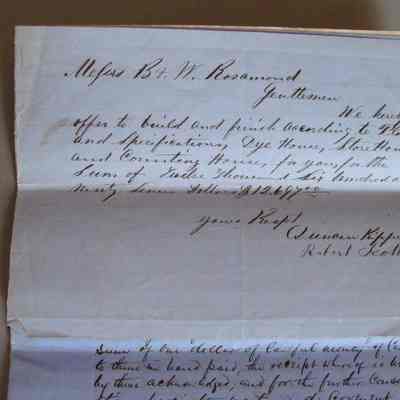 Messrs B & W. Rosamond
Gentlemen
We here
offer to build and finish according to
and Specifications, Dye House, Store Hou
and Counting House, for you, for the
Sum of Twelve Thousand Six Hundred a
Ninty Seven Dollars $12697.00
yours Respt
Duncan
Robert Scott
sum of one dollar of lawful money of C
to them in hand paid, the receipt whereof is
by them acknowledged, and for the further Cons